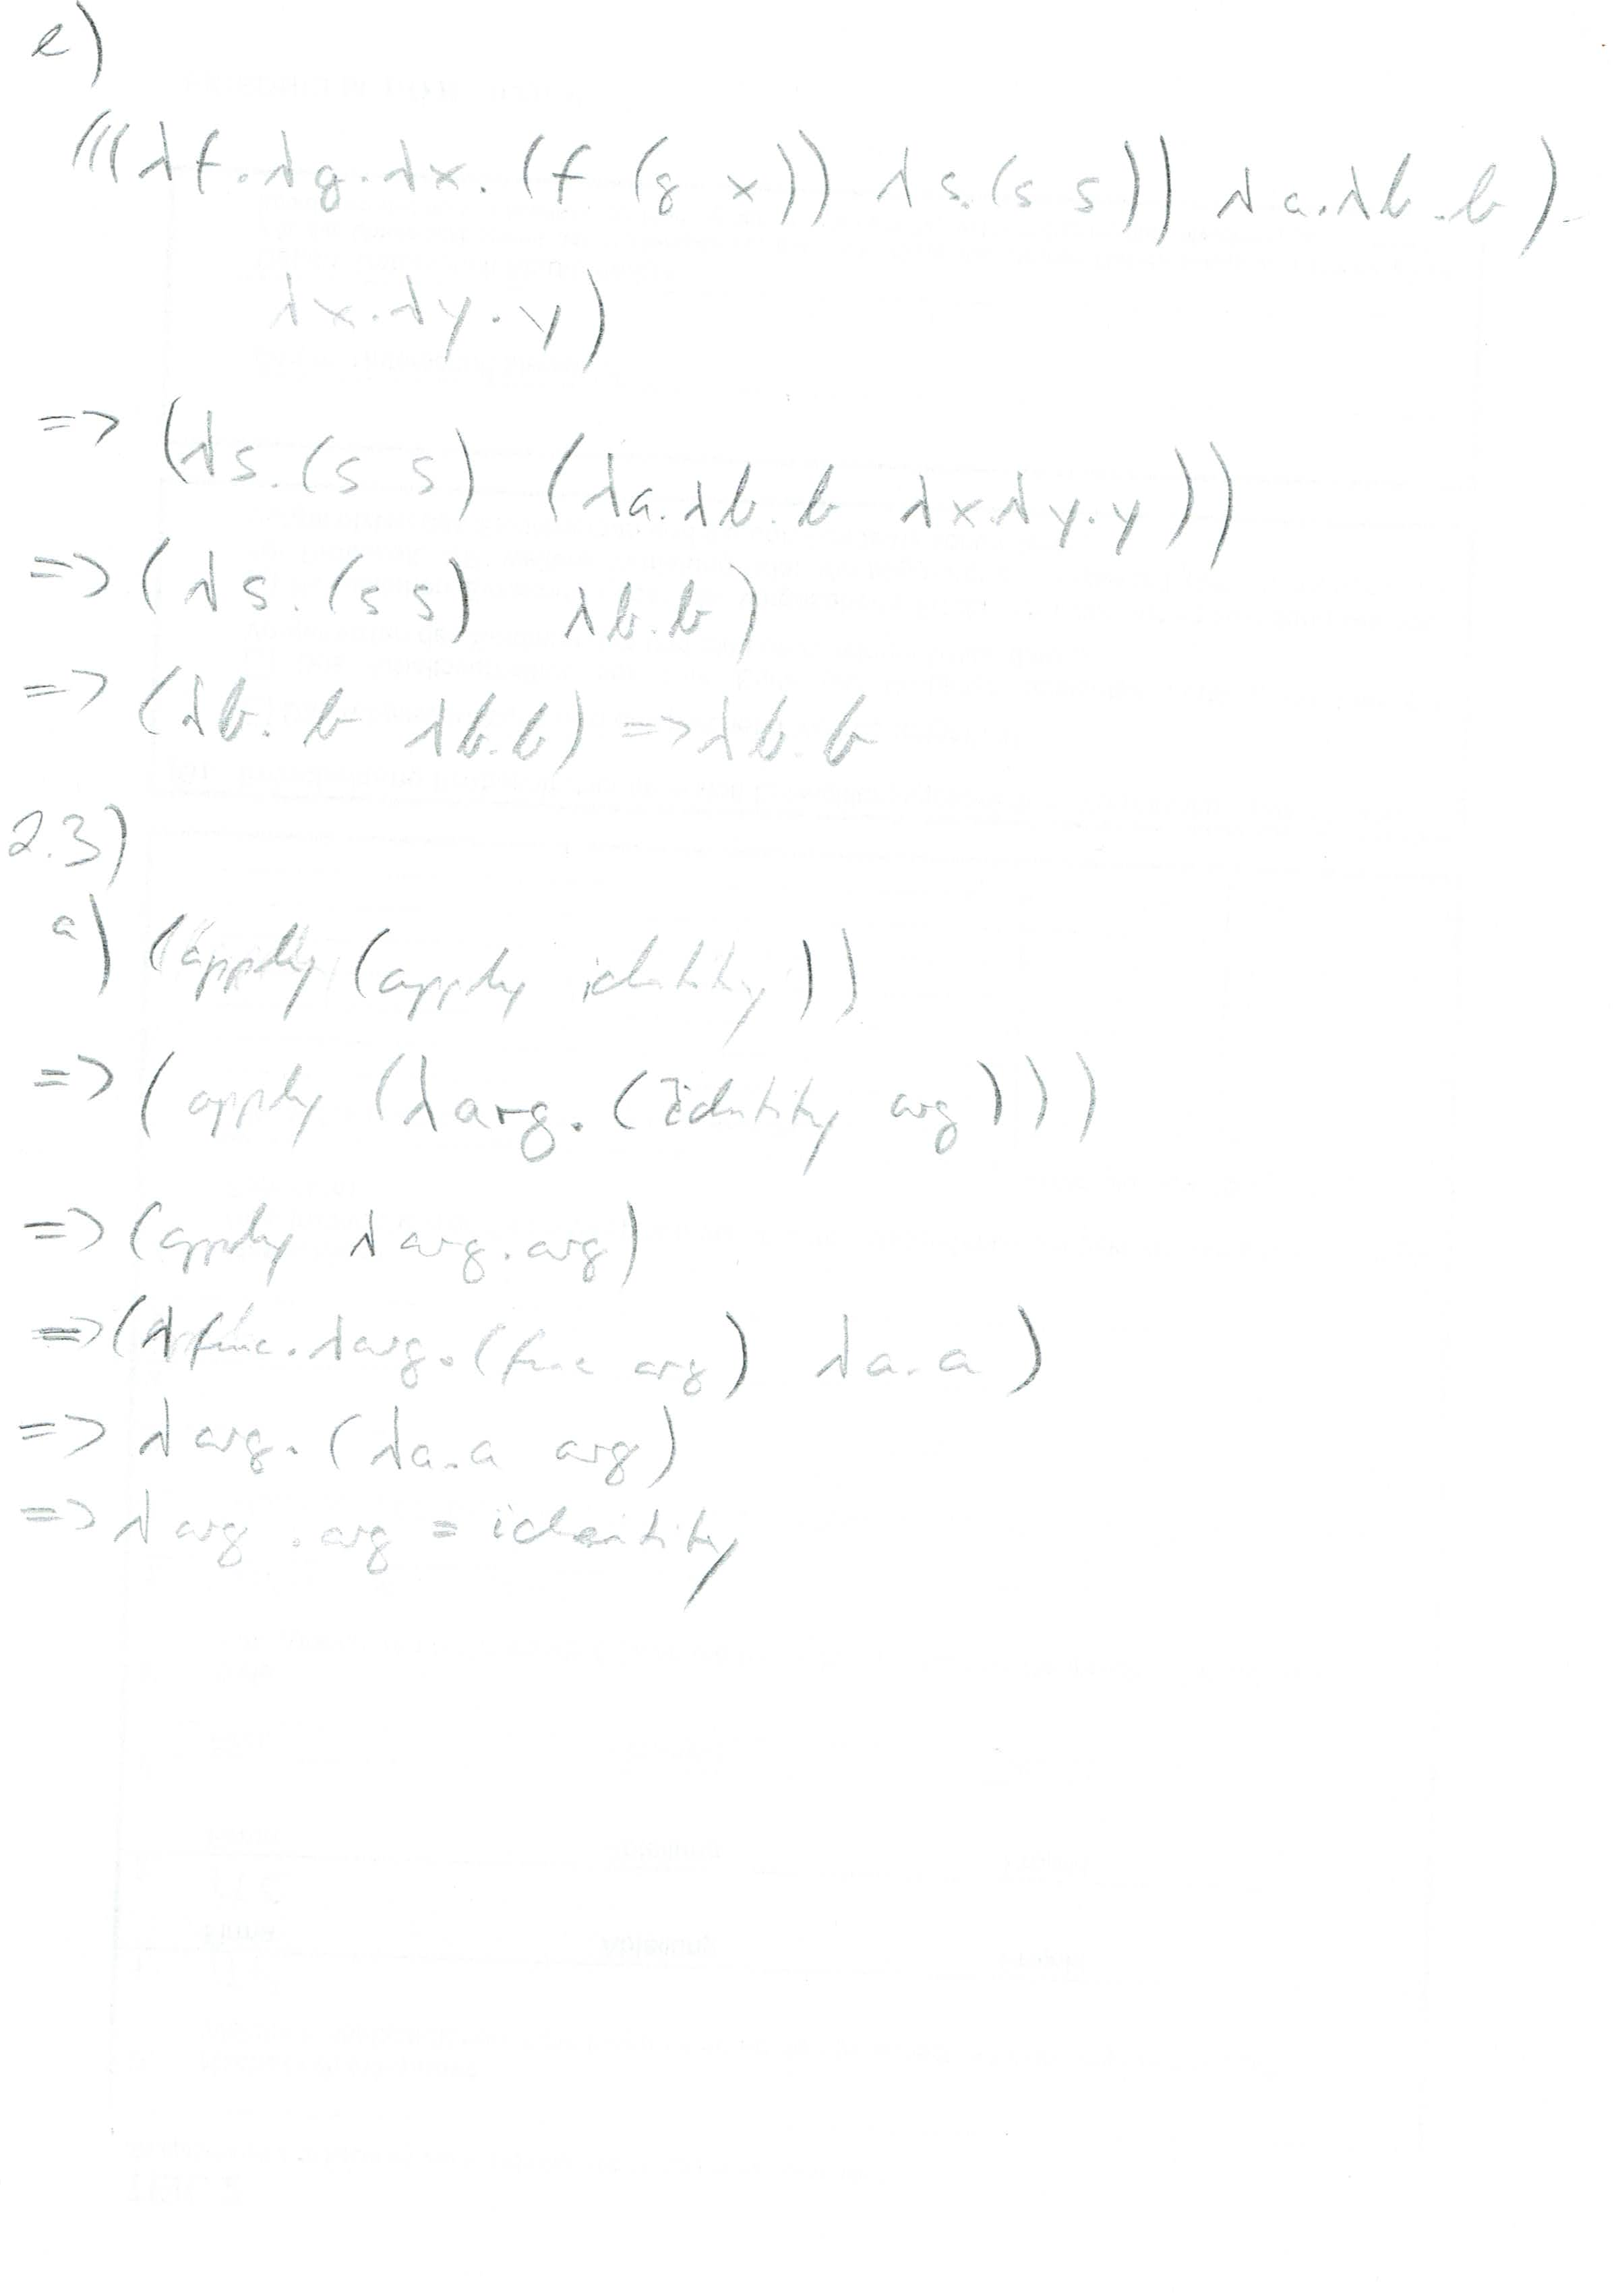 e)
(((λf.λg.λx.(f (g x)) λs.(s s)) λa.λb.b).
λx.λy.y)
=> (λs.(s s) (λa.λb.b λx.λy.y))
=> (λs.(s s) λb.b)
=> (λb.b λb.b) => λb.b
2.3)
a) (apply (apply identity))
=> (apply (λarg.(identity arg)))
=> (apply λarg.arg)
=> (λfunc.λarg.(func arg) λa.a)
=> λarg.(λa.a arg)
=> λarg.arg = identity